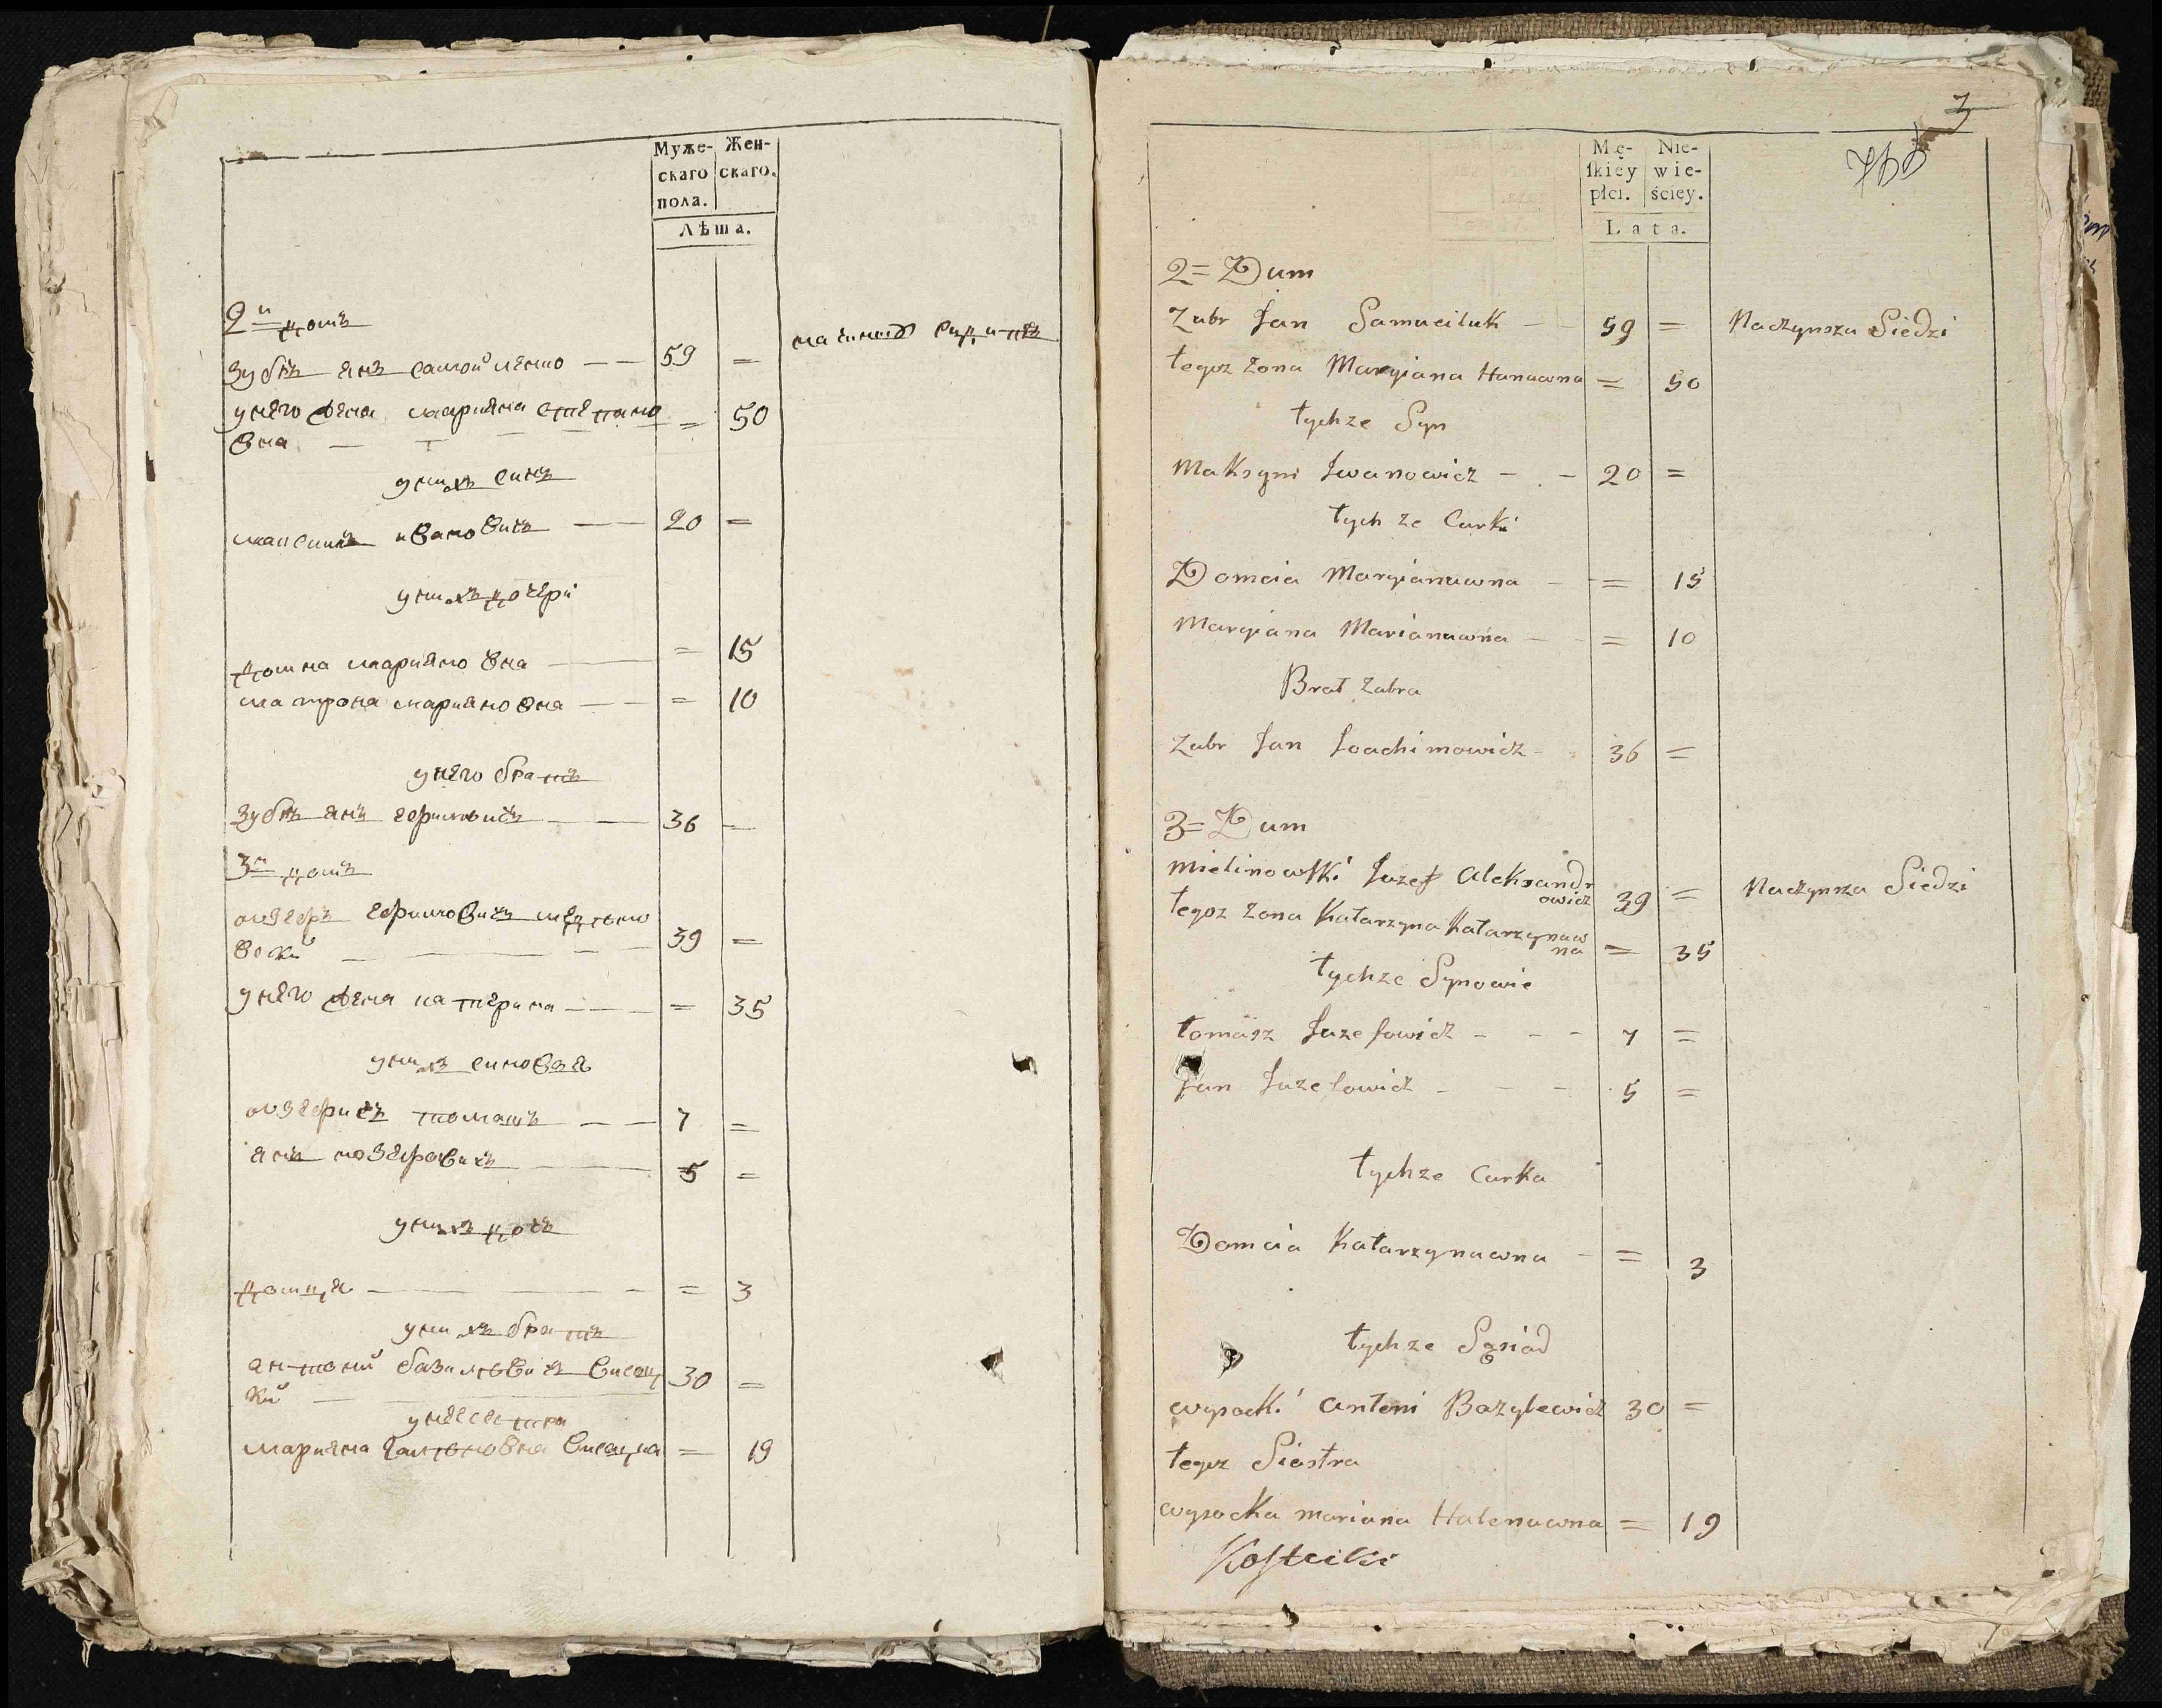 Муже-
скаго
пола.
Жен-
скаго.
Лѣта.
2й домъ
Зубръ Янъ Самойленко — — 59 =
на чиншъ сидитъ
у него жена Марияна Степано = 50
вна
у нихъ синъ
Максимъ ивановичъ — — 20 =
у нихъ дочери
домна Марияновна — = 15
Матрона Марияновна — — = 10
у него братъ
Зубръ Янъ — — 36 —
3й домъ
вский — — — 39 =
у него жена катерина — — = 35
у нихъ синовъя
томашъ — — 7 =
Янъ — 5 =
у нихъ доч
домця — — — = 3
у нихъ братъ
антоний базилевичъ висоц 30 =
кий
у нее сестра
Марияна висоцка = 19
3
Mę-
ſkiey
płci.
Nie-
wie-
ściey.
Lata.
2= Dum
Zubr Jan Samueiluk — — 59 = Naczynszu Siedzi
tegoz Zona Maryiana Hanuwna = 50
tychze Syn
Maksym Jwanowicz — . — 20 =
tych ze Curki
Domcia Maryianuwna — = 15
Maryiana Marianuwna — — = 10
Brat Zubra
Zubr Jan Joachimowicz — 36 =
3= Dum
Mielinowſki Juzef Aleksandr
owicz 39 = Naczynszu Siedzi
tegoz Zona Katarzyna Katarzynuw
na = 35
tychze Synowie
Tomasz Juzefowicz — — — 7 =
Jan Juzefowicz — — — 5 =
tychze Curka
Domcia Katarzynuwna — = 3
tychze Sąsiad
wysocki Antoni Bazylewicz 30 =
tegoz Siostra
wysocka Mariana Halenuwna = 19
Koſteicki